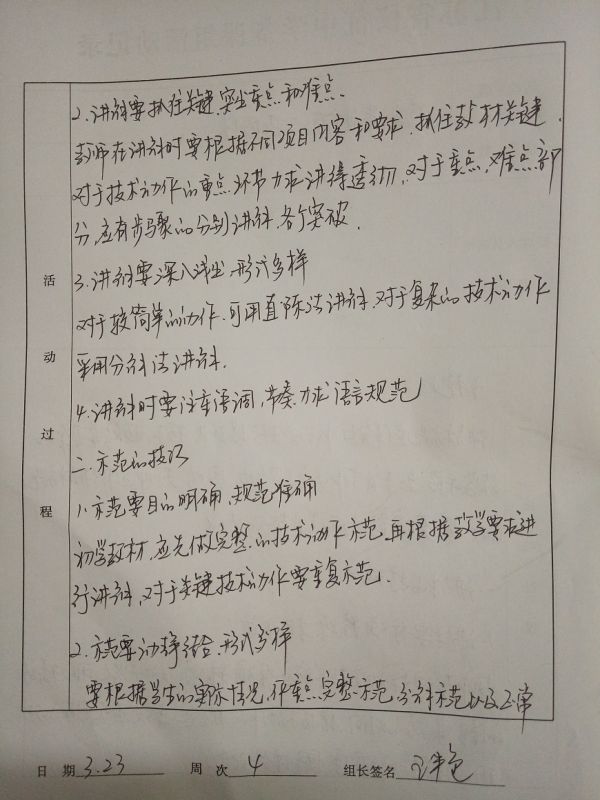 2.讲解要抓住关键,突出重点和难点.
教师在讲解时要根据不同项目内容和要求,抓住教材关键.
对于技术动作的重点环节力求讲得透彻,对于重点,难点部
分,应有步骤的分别讲解,各个突破.
3.讲解要深入浅出,形式多样
对于较简单的动作,可用直陈法讲解,对于复杂的技术动作
采用分解法讲解.
4.讲解时要注意语调,节奏,力求语言规范
二.示范的技巧
1.示范要目的明确,规范准确
初学教材,应先做完整的技术动作示范,再根据教学要求进
行讲解,对于关键技术动作要重复示范.
2.示范要动静结合,形式多样
要根据学生的实际情况,作重点完整示范,分解示范以及正常
活动过程
日 期 3.23 周 次 4 组长签名